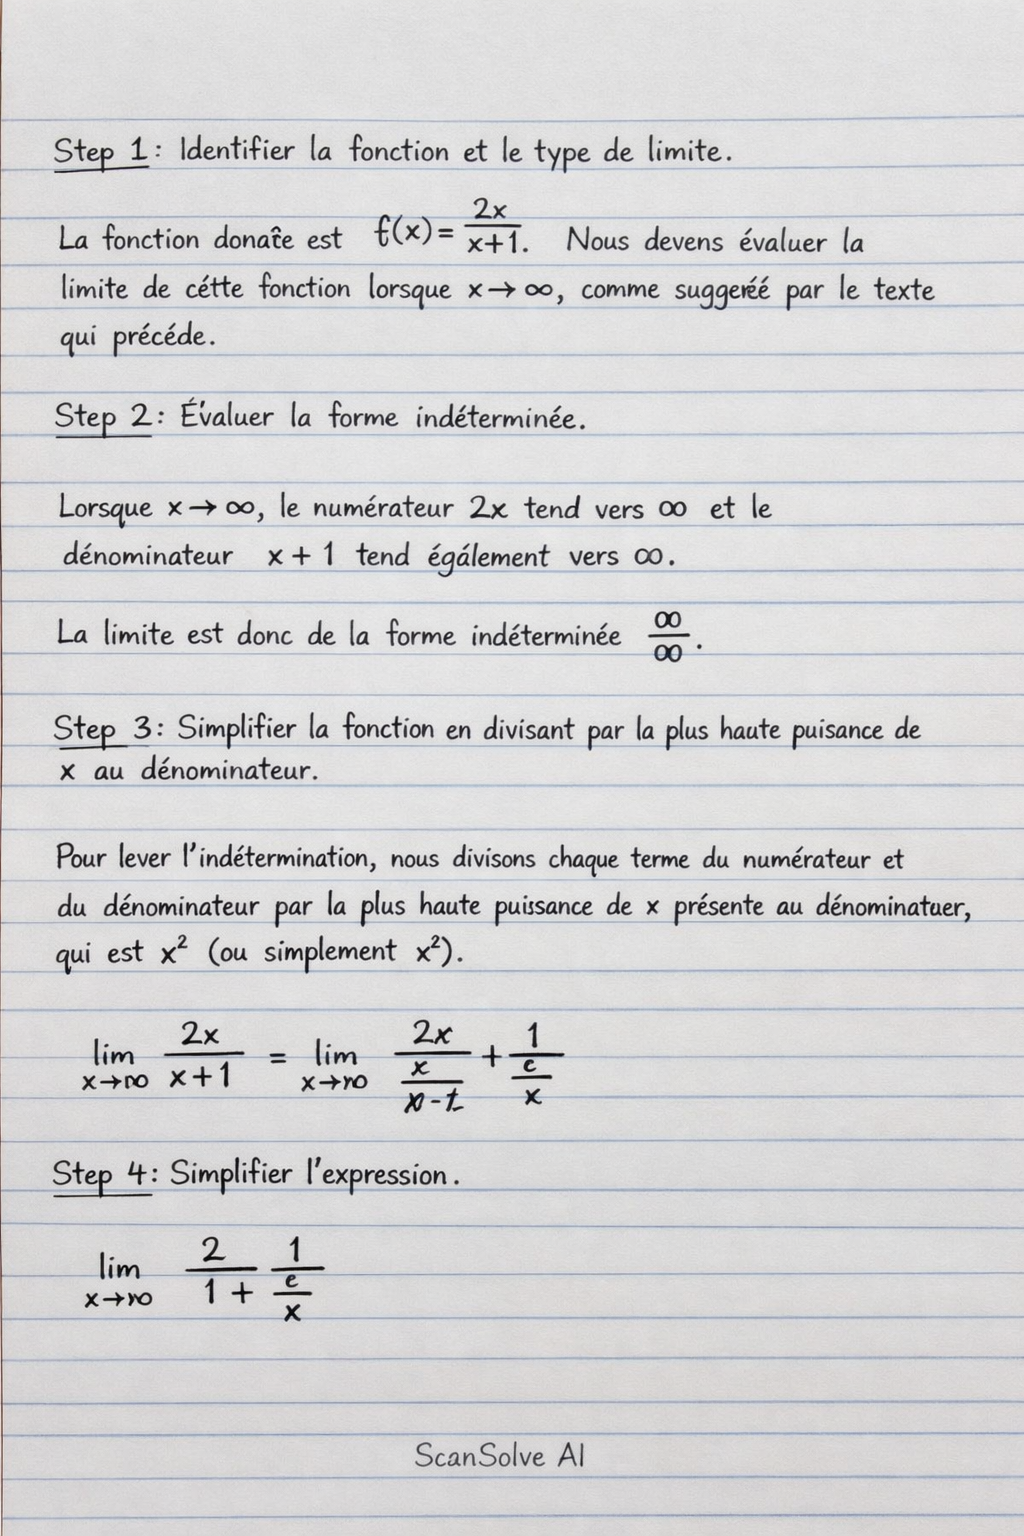 Step 1: Identifier la fonction et le type de limite.
La fonction donaîe est f(x) = 2x / x+1. Nous devens évaluer la
limite de cétte fonction lorsque x → ∞, comme suggeréé par le texte
qui précéde.
Step 2: Évaluer la forme indéterminée.
Lorsque x → ∞, le numérateur 2x tend vers ∞ et le
dénominateur x + 1 tend égálement vers ∞.
La limite est donc de la forme indéterminée ∞/∞.
Step 3: Simplifier la fonction en divisant par la plus haute puisance de
x au dénominateur.
Pour lever l'indétermination, nous divisons chaque terme du numérateur et
du dénominateur par la plus haute puissance de x présente au dénominatuer,
qui est x² (ou simplement x²).
2x 2x 1
lim = lim +
x+1 x e
x
Step 4: Simplifier l'expression.
2 1
lim
1 + e
x
ScanSolve AI